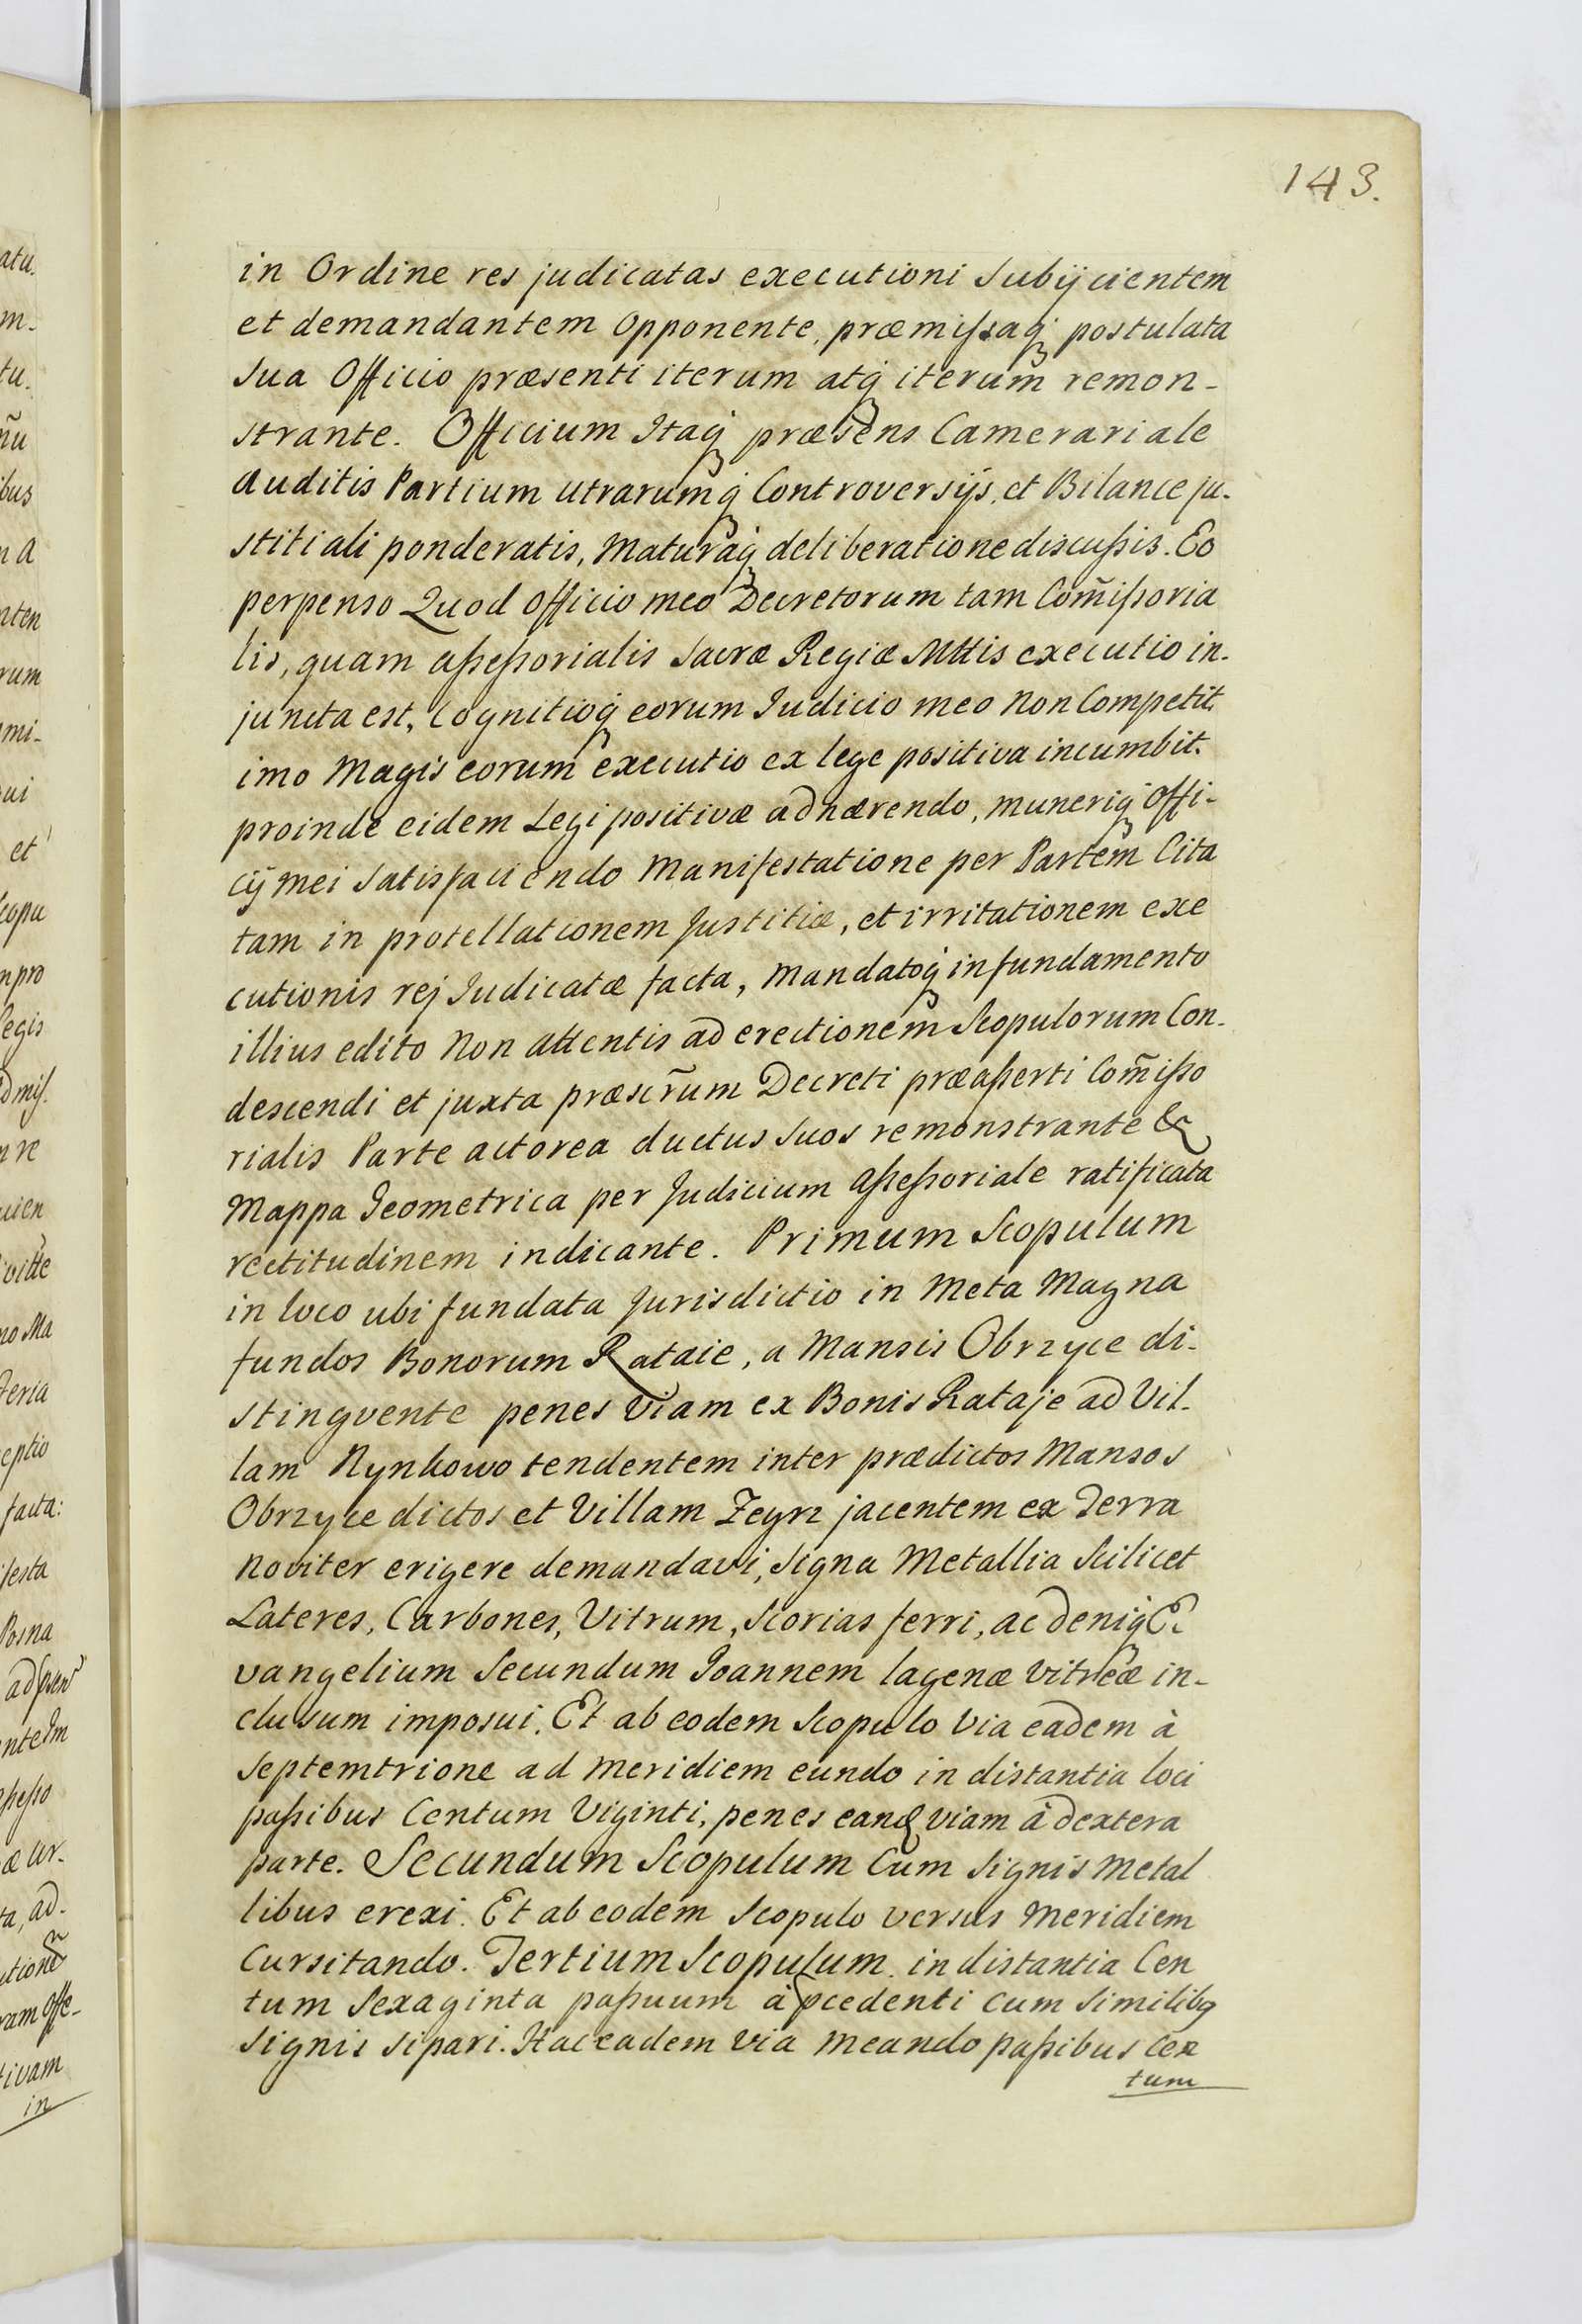 143.
in Ordine res judicatas executioni subijcientem
et demandantem opponente, præmissaq; postulata
sua Officio præsenti iterum atq; iterum remon-
strante. Officium Itaq; præsens Camerariale
auditis Partium utrarumq; Controversijs, et Bilance ju-
stitiali ponderatis, maturaq; deliberatione discussis. Eo
perpenso Quod officio meo Decretorum tam Com̃issoria
lis, quam assessorialis Sacræ Regiæ Mttis executio in-
juncta est, Cognitioq; eorum Judicio meo non Competit.
imo Magis eorum executio ex lege positiva incumbit.
proinde eidem Legi positivæ adhærendo, muneriq; offi-
cij mei satisfaciendo Manifestatione per Partem Cita
tam in protellationem Justitiæ, et irritationem exe
cutionis rej Judicatæ facta, mandatoq; in fundamento
illius edito non attentis ad erectionem Scopulorum Con-
descendi et juxta præscr̃um Decreti præasserti Com̃isso
rialis Parte actorea ductus suos remonstrante &
Mappa Geometrica per Judicium assessoriale ratificata
rectitudinem indicante. Primum Scopulum
in loco ubi fundata Jurisdictio in Meta Magna
fundos Bonorum Rataie, a Mansis Obrzyce di-
stingvente penes viam ex Bonis Rataje ad Vil-
lam Nynkowo tendentem inter prædictos Mansos
Obrzyce dictos et Villam Zeyrz jacentem ex Terra
noviter erigere demandavi, signa Metallia Scilicet
Lateres, Carbones, Vitrum, Scorias ferri, ac deniq; E
vangelium Secundum Joannem lagenæ vitreæ in-
clusum imposui. Et ab eodem Scopulo via eadem à
septemtrione ad meridiem eundo in distantia loci
passibus Centum Viginti, penes eand viam à dextera
parte. Secundum Scopulum Cum signis metal
libus erexi. Et ab eodem Scopulo versus meridiem
Cursitando. Tertium Scopulum. in distantia Cen
tum Sexaginta passuum à pcedenti cum similibq
signis sipari. Hac eadem via meando passibus Cen
tum